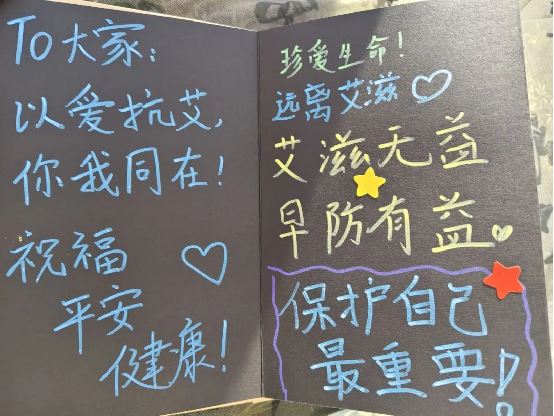 TO大家:
以爱抗艾,
你我同在!
祝福
平安
健康!
珍爱生命!
远离艾滋
艾滋无益
早防有益
保护自己
最重要!